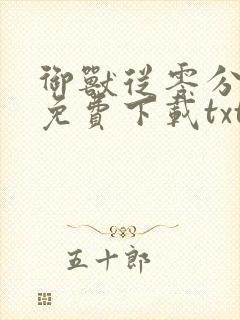 御獸從零分
免費下載txt
五十郎